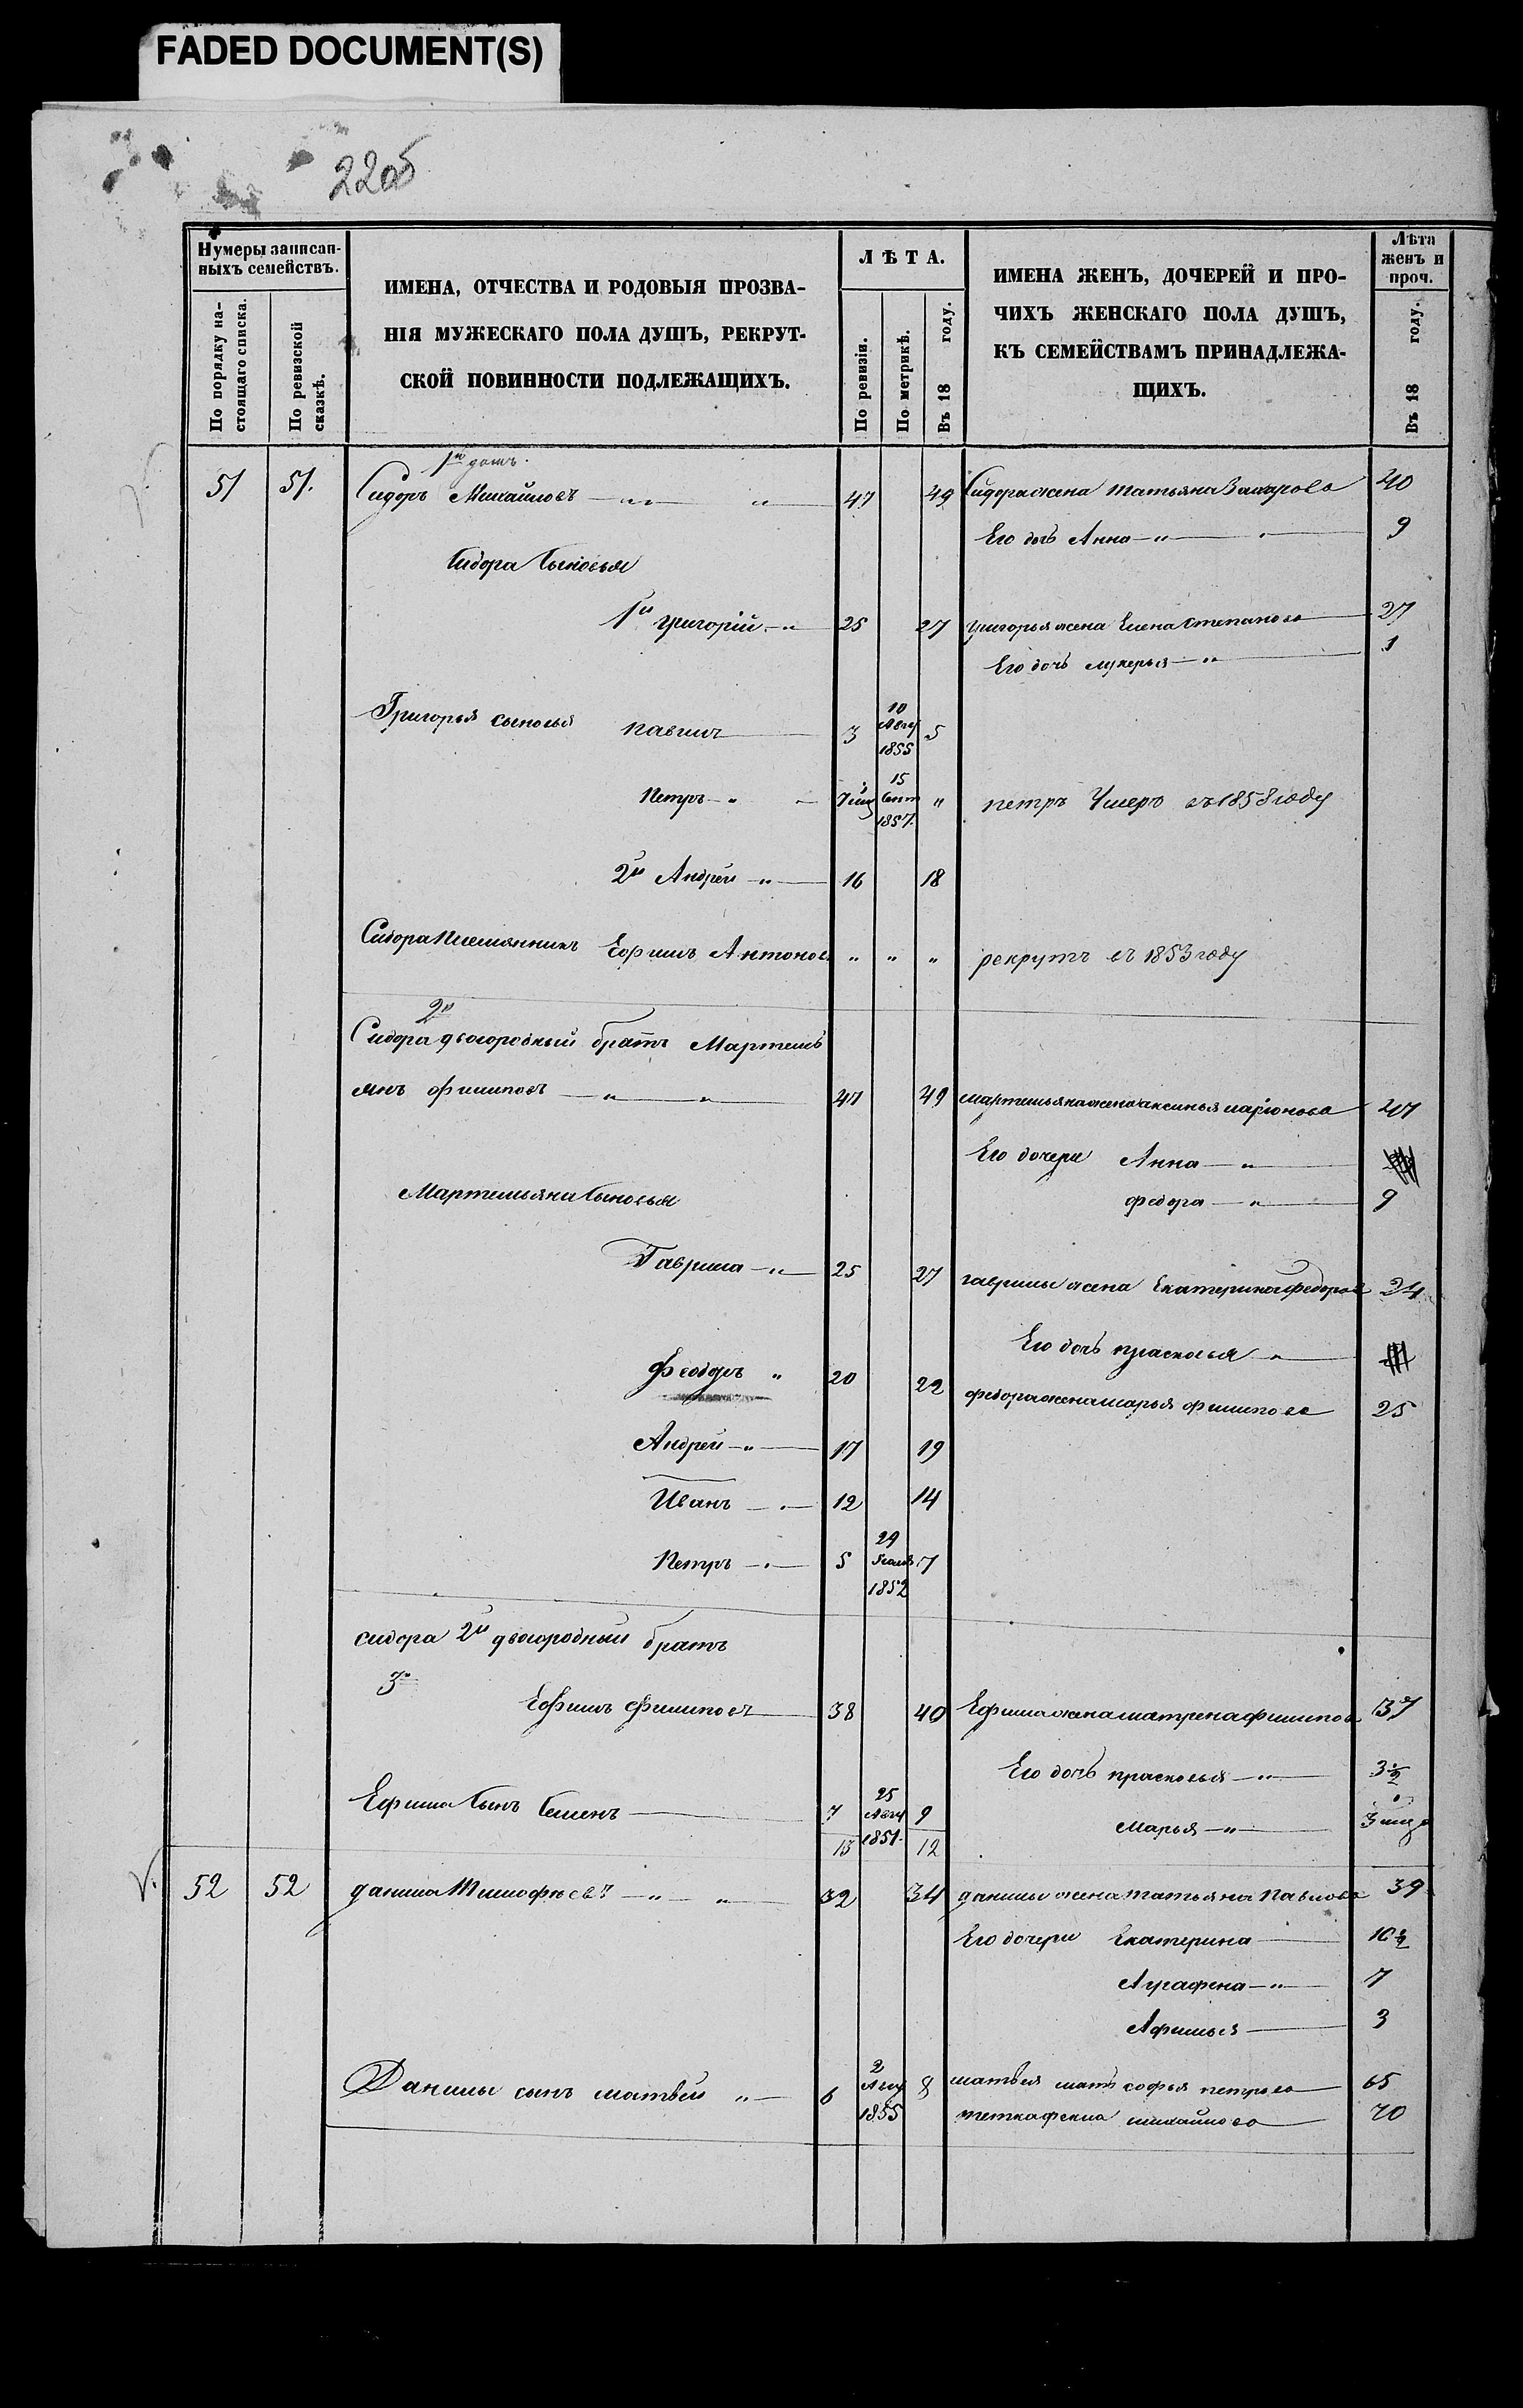 FADED DOCUMENT(S)
22об
Нумеры записан-
ныхъ семействъ.
По порядку на-
стоящаго списка.
По ревизской
сказкѣ.
ИМЕНА, ОТЧЕСТВА И РОДОВЫЯ ПРОЗВА-
НІЯ МУЖЕСКАГО ПОЛА ДУШЪ, РЕКРУТ-
СКОЙ ПОВИННОСТИ ПОДЛЕЖАЩИХЪ.
ЛѢТА.
По ревизіи.
По метрикѣ.
Въ 18 году.
ИМЕНА ЖЕНЪ, ДОЧЕРЕЙ И ПРО-
ЧИХЪ ЖЕНСКАГО ПОЛА ДУШЪ,
КЪ СЕМЕЙСТВАМЪ ПРИНАДЛЕЖА-
ЩИХЪ.
Лѣта
женъ и
проч.
Въ 18 году.
1й домъ.
51 51. Сидоръ Михайловъ — „ „ 47 49 Сидора жена татьяна Захарова 40
Его дочь Анна — „ 9
Сидора Сыновья
1й григорій — „ 25 27 григорья жена Елена степанова 27
Его дочь лукерья — „ 1
Григорья сыновья павелъ 3 10 Авгу 1855 5
Петръ — „ 15 Сент 1857. „ петръ Умеръ въ 1858 году
2й Андрей — „ 16 18
Сидора Племянникъ Ефимъ Антонов „ „ „ рекрутъ въ 1853 году
2й
Сидора двоюродный братъ Мартемь
янъ филиповъ — „ „ 47 49 мартемьяна жена аксинья ларіонова 47
Его дочери Анна — „
Мартемьяна Сыновья федора — „ 9
Гаврила — „ 25 27 гаврилы жена Екатерина федоров 24
Его дочь прасковья „
Феодоръ „ 20 22 федора жена марья филипова 25
Андрей — „ 17 19
Иванъ — 12 14
Петръ — 5 29 1852 7
сидора 2й двоюродный братъ
3й
Ефимъ Филиповъ 38 40 Ефима жена матрена филипов 37
Его дочь прасковья — „ 3½
Ефима Сынъ Семенъ 7 25 Авгу 1851. 9
Марья — „ 3 мца
13 12
52 52 данила Тимофѣевъ — „ „ 32 34 данилы жена татьяна Павлова 39
Его дочери Екатерина 10½
Аграфена — „ 7
Афимья 3
Данилы сынъ матвѣй „ 6 2 Авгу 1855 8 матвѣя мать софья петрова 65
тетка фекла михайлова 70